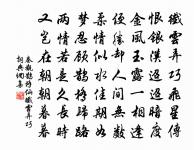 纖雲弄巧飛星傳
恨銀漢迢迢暗度
金風玉露一相逢
便勝卻人間無數
柔情似水佳期如
夢忍顧鵲橋歸路
兩情若是久長時
又豈在朝朝暮暮
秦觀鵲橋仙纖雲弄巧
詞典網集